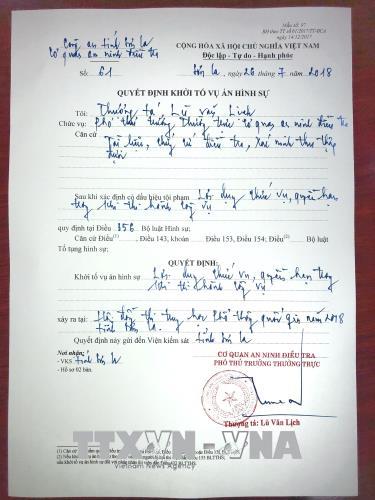 Mẫu số: 97
BH theo TT số 61/2017/TT-BCA
ngày 14/12/2017
Công an tỉnh Sơn La
Cơ quan an ninh điều tra
Số 61
CỘNG HÒA XÃ HỘI CHỦ NGHĨA VIỆT NAM
Độc lập - Tự do - Hạnh phúc
Sơn la, ngày 26 tháng 7 năm 2018
QUYẾT ĐỊNH KHỞI TỐ VỤ ÁN HÌNH SỰ
Tôi: Thượng tá Lù Văn Lịch
Chức vụ: Phó thủ trưởng thường trực cơ quan an ninh điều tra
Căn cứ Tài liệu, chứng cứ điều tra, xác minh thu thập
được
Sau khi xác định có dấu hiệu tội phạm Lợi dụng chức vụ, quyền hạn
trong khi thi hành công vụ
quy định tại Điều 356 Bộ luật Hình sự;
Căn cứ Điều(1), Điều 143, khoản Điều 153, Điều 154; Điều(2) Bộ luật
Tố tụng hình sự;
QUYẾT ĐỊNH:
Khởi tố vụ án hình sự Lợi dụng chức vụ, quyền hạn trong
khi thi hành công vụ
xảy ra tại: Hội đồng thi trung học Phổ thông quốc gia năm 2018
tỉnh Sơn La.
Quyết định này gửi đến Viện kiểm sát tỉnh Sơn la
Nơi nhận:
- VKS tỉnh Sơn la
- Hồ sơ 02 bản.
CƠ QUAN AN NINH ĐIỀU TRA
PHÓ THỦ TRƯỞNG THƯỜNG TRỰC
Thượng tá: Lù Văn Lịch
TTXVN-VNA
Vietnam News Agency